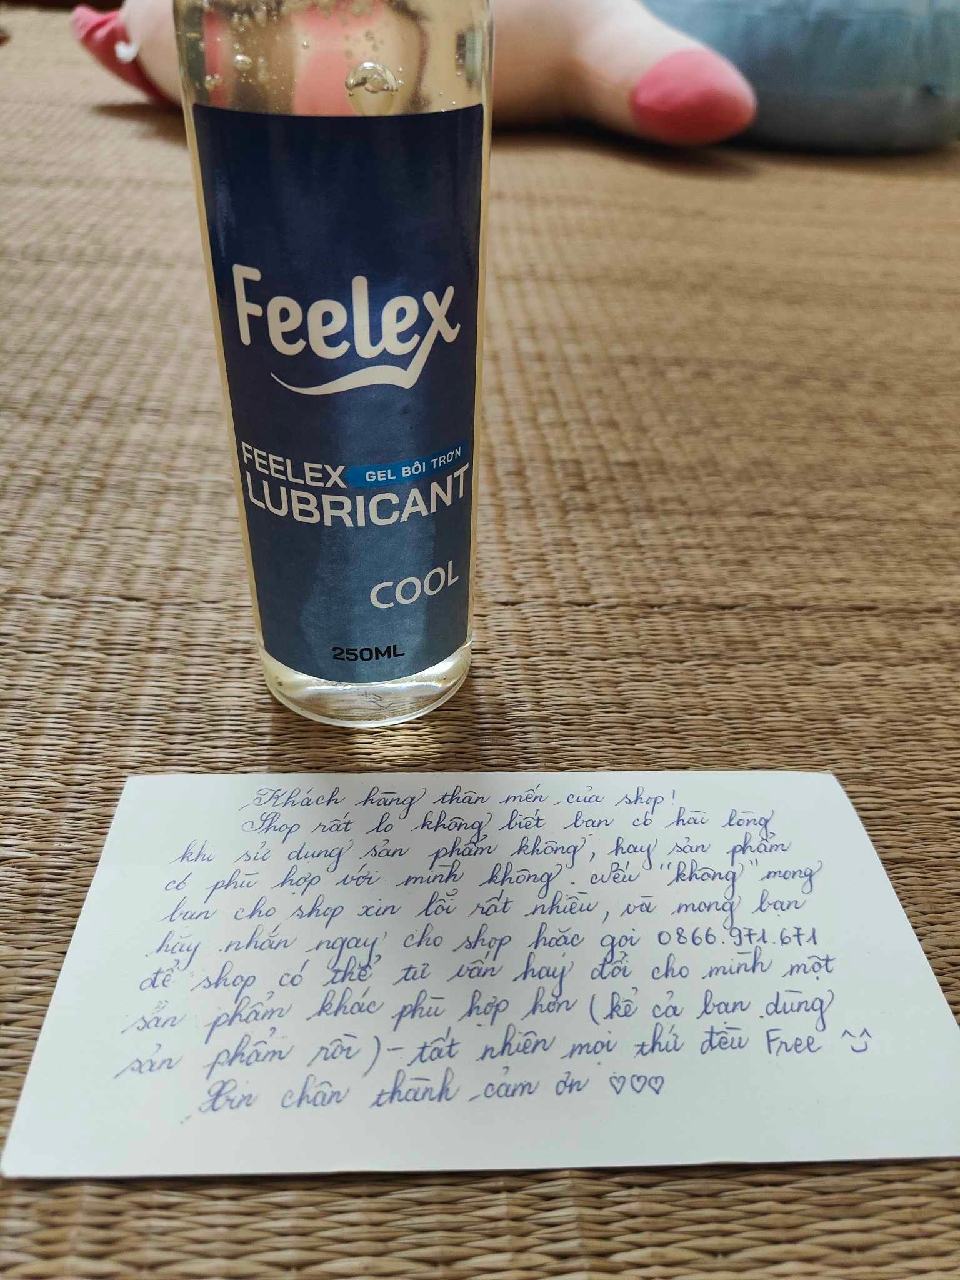 Feelex
FEELEX GEL BÔI TRƠN
LUBRICANT
COOL
250ML
Khách hàng thân mến của shop!
Shop rất lo không biết bạn có hài lòng
khi sử dụng sản phẩm không, hay sản phẩm
có phù hợp với mình không. Nếu "không" mong
bạn cho shop xin lỗi rất nhiều, và mong bạn
hãy nhắn ngay cho shop hoặc gọi 0866.971.671
để shop có thể tư vấn hay đổi cho mình một
sản phẩm khác phù hợp hơn (kể cả bạn dùng
sản phẩm rồi) - tất nhiên mọi thứ đều Free ^^
Xin chân thành cảm ơn ♡♡♡